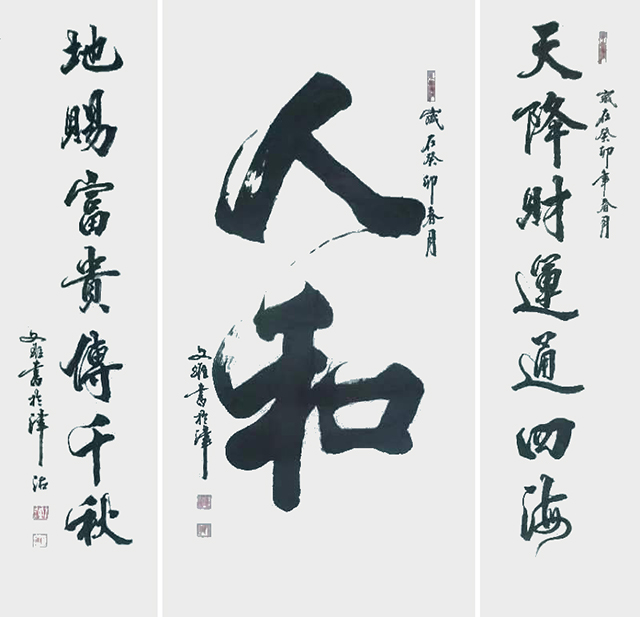 歲在癸卯年春月
天降財運通四海
歲在癸卯春月
人和
文雅書於津
地賜富貴傳千秋
文雅書於津沽